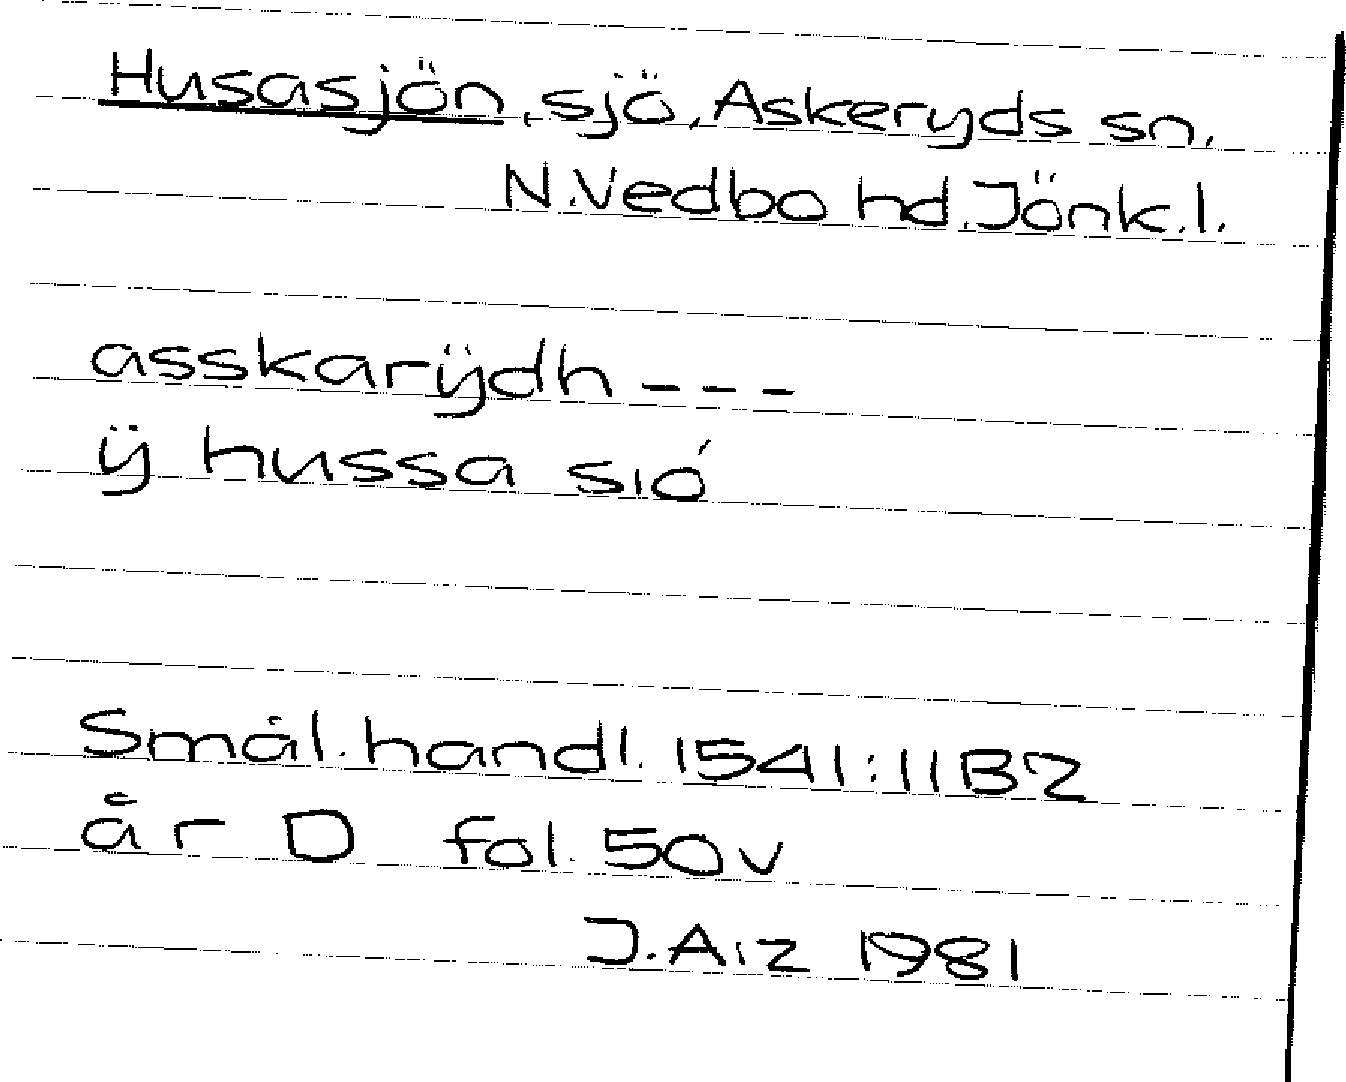 Husasjön, sjö, Askeryds sn.
N.Vedbo hd. Jönk.l.
asskarÿdh - - -
ÿ hussa sıó
Smål. handl. 1541:11B2
år D fol. 50v
J.Aız 1981